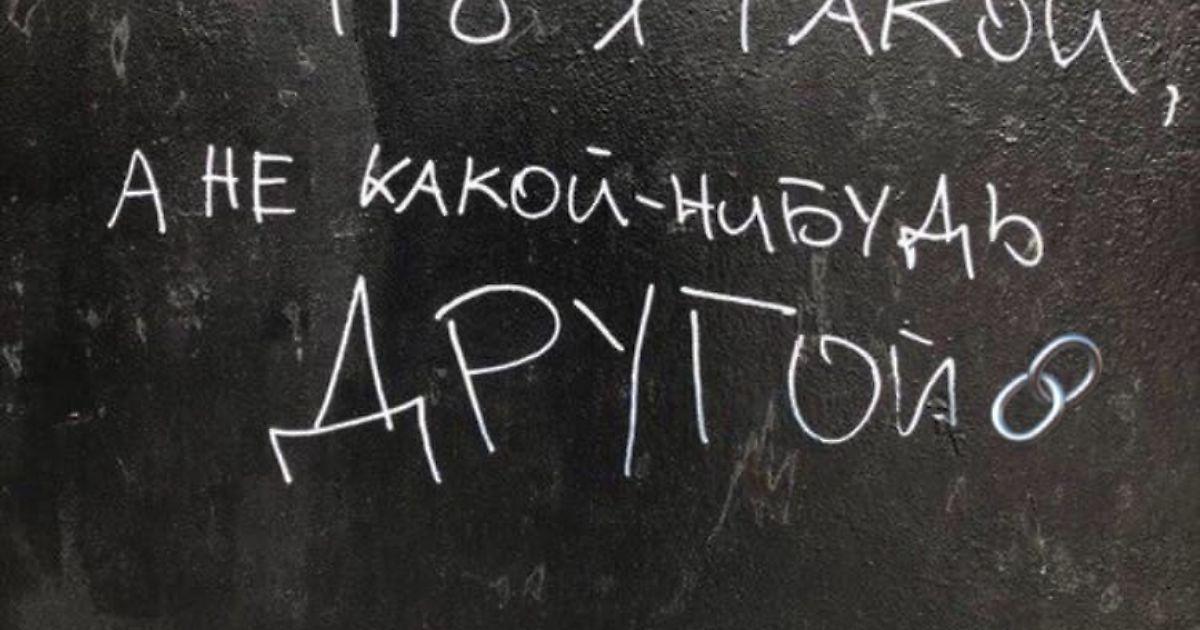 ЧТО Я ТАКОЙ,
А НЕ КАКОЙ-НИБУДЬ
ДРУГОЙ